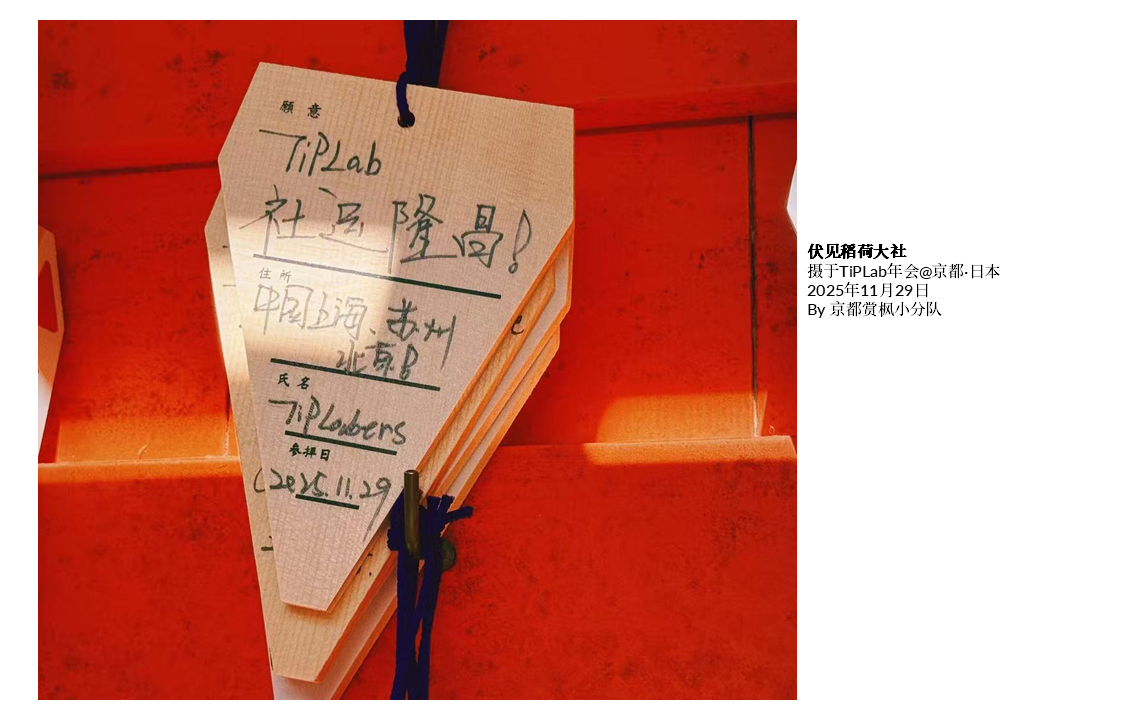 願意
TiPLab
社运隆昌!
住所
中国上海、苏州
北京
氏名
TiPLabers
参拝日
2025.11.29
伏见稻荷大社
摄于TiPLab年会@京都·日本
2025年11月29日
By 京都赏枫小分队